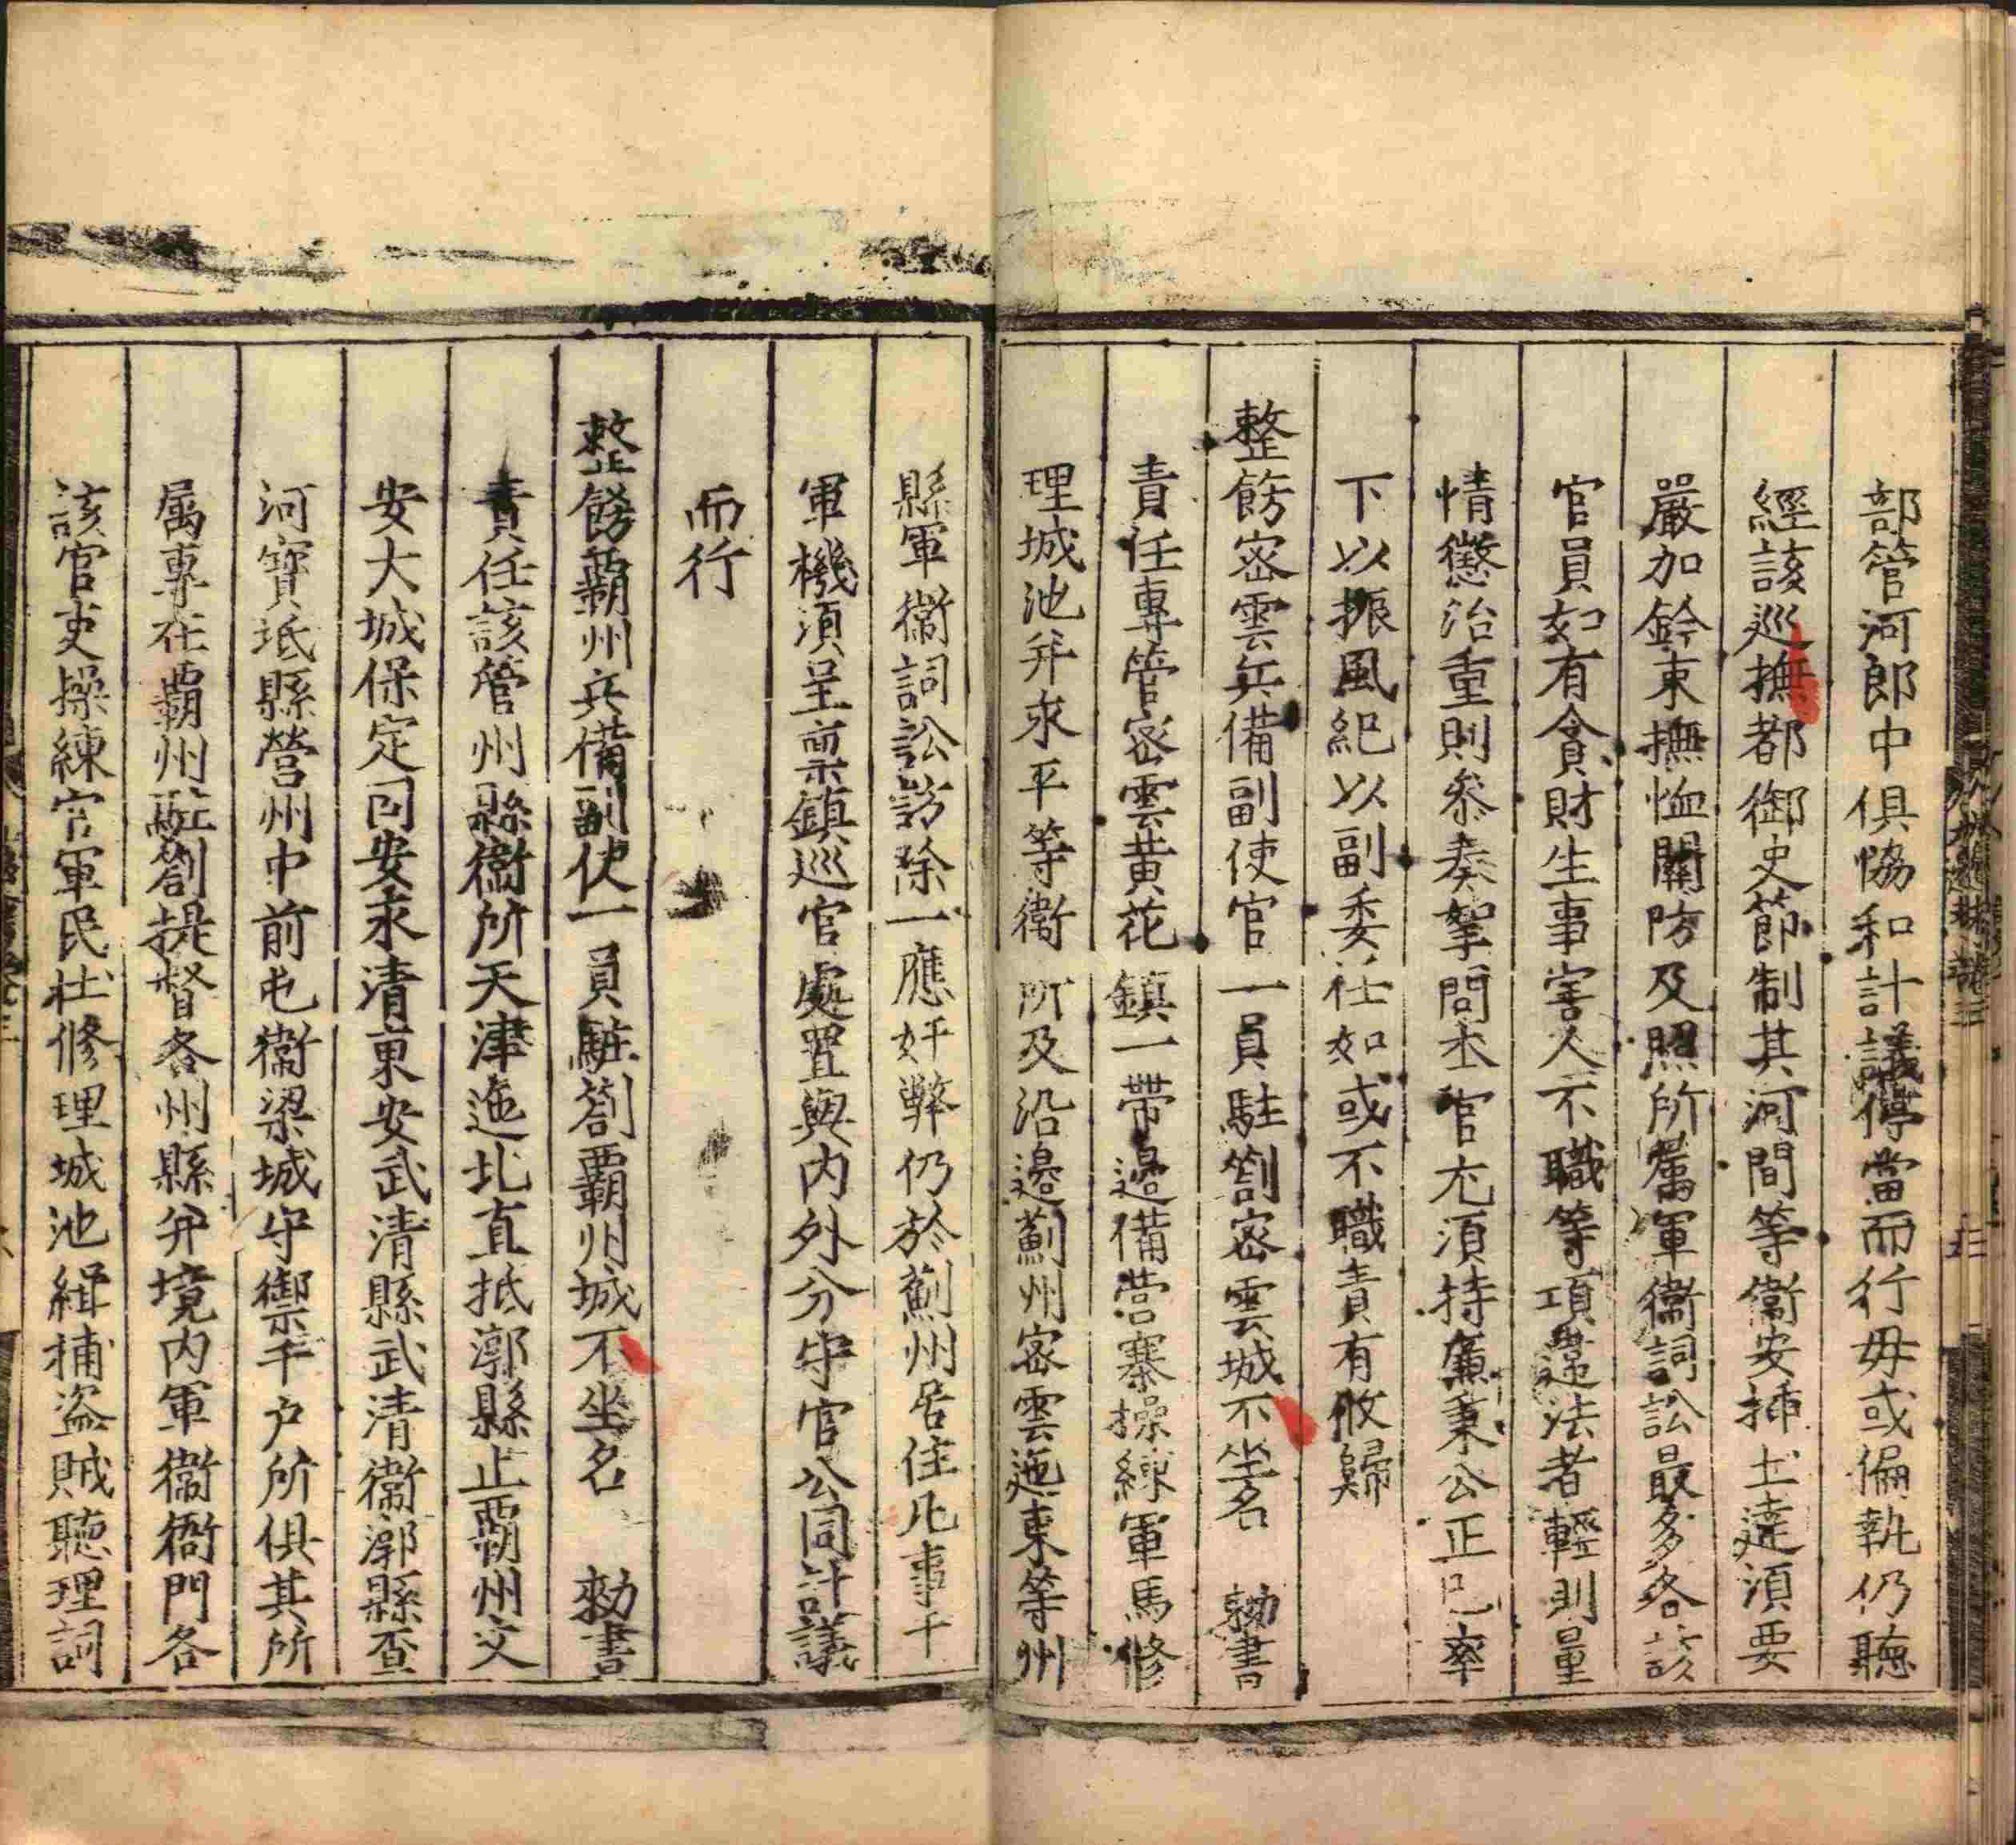 部管河郎中俱恊和計議停當而行毋或偏執仍聽
經該巡撫都御史節制其河間等衞安揷土達湏要
嚴加鈐束撫恤關防及照所屬軍衞詞訟最多各該
官員如有貪財生事害人不職等項違法者輕則量
情懲治重則叅奏拏問本官尢湏持亷秉公正己率
下以振風紀以副委任如或不職責有攸歸
整飭宻雲兵備副使官一員駐劄宻雲城不坐名 勑書
責任專管宻雲黄花鎮一帶邊備营寨操練軍馬修
理城池并永平等衞所及沿邊薊州宻雲迤東等州
縣軍衞詞訟訪除一應奸弊仍於薊州居住凢事干
軍機湏呈禀鎮巡官處置與内外分守官公同計議
而行
整飭霸州兵備副使一員駐劄覇州城不坐名 勑書
責任該管州縣衞所天津迤北直抵漷縣止覇州文
安大城保定囙安永清東安武清縣武清衞漷縣查
河寳坻縣營州中前屯衞梁城守禦千户所俱其所
属專在覇州駐劄提督各州縣并境内軍衞衙門各
該官吏操練官軍民壮修理城池緝捕盗賊聽理詞